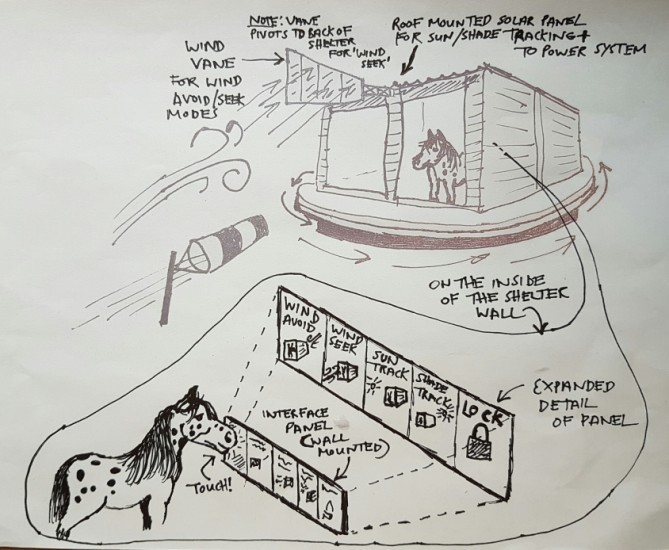 NOTE: VANE
PIVOTS TO BACK OF
SHELTER
FOR 'WIND
SEEK'
ROOF MOUNTED SOLAR PANEL
FOR SUN/SHADE-TRACKING +
TO POWER SYSTEM
WIND
VANE
FOR WIND
AVOID/SEEK
MODES
ON THE INSIDE
OF THE SHELTER
WALL
WIND
AVOID
WIND
SEEK
SUN
TRACK
SHADE
TRACK
LOCK
EXPANDED
DETAIL
OF PANEL
INTERFACE
PANEL
(WALL
MOUNTED)
TOUCH!